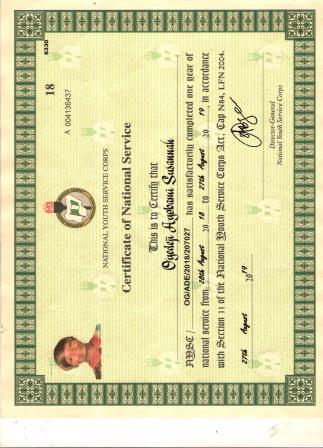 6330
18
A 004136437
NATIONAL YOUTH SERVICE CORPS
Certificate of National Service
This is to Certify that
Ayobami Susannah
NYSC / OG/ADE/2018/207027 has satisfactorily completed one year of
national service from 28th August 20 18 to 27th August 20 19 in accordance
with Section 11 of the National Youth Service Corps Act, Cap N84, LFN 2004.
27th August 20 19
Director-General
National Youth Service Corps